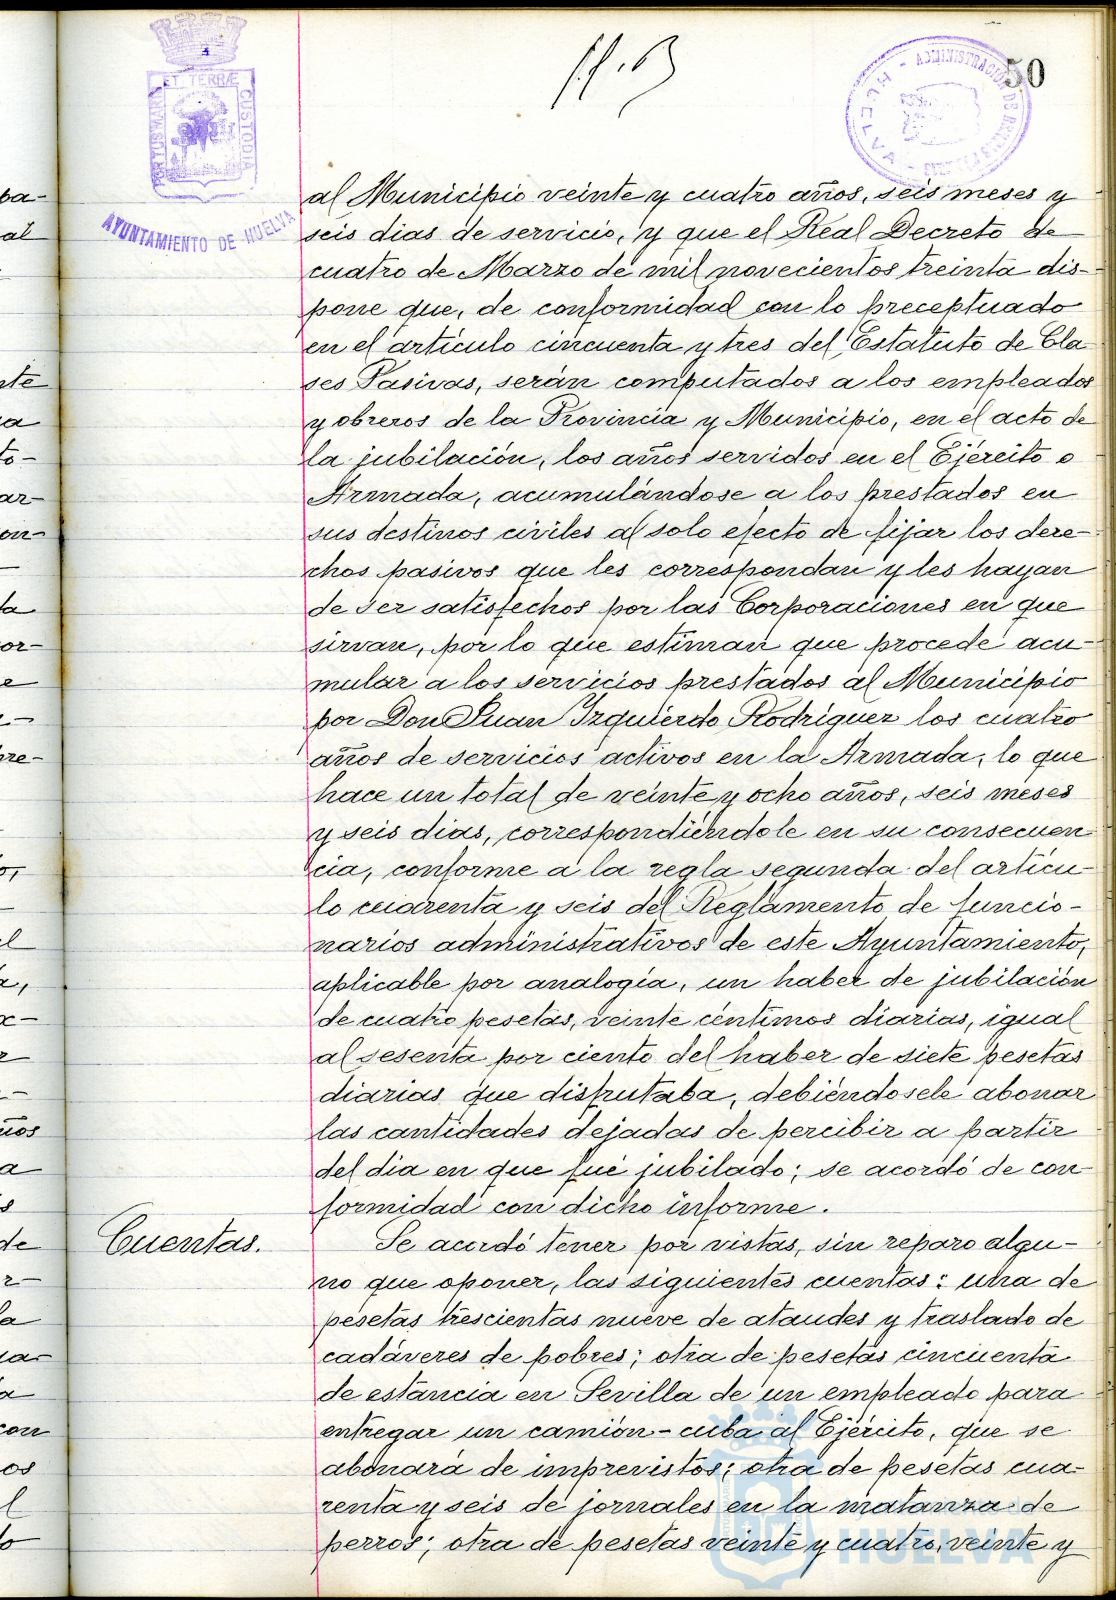 50
PORTUS MARIS
ET TERRÆ
CUSTODIA
AYUNTAMIENTO DE HUELVA
ADMINISTRACION DE
HUELVA
al Municipio veinte y cuatro años, seis meses y
seis dias de servicio, y que el Real Decreto de
cuatro de Marzo de mil novecientos treinta dis-
pone que, de conformidad con lo preceptuado
en el artículo cincuenta y tres del Estatuto de Cla
ses Pasivas, serán computados a los empleados
y obreros de la Provincia y Municipio, en el acto de
la jubilación, los años servidos en el Ejército o
Armada, acumulándose a los prestados en
sus destinos civiles al solo efecto de fijar los dere-
chos pasivos que les correspondan y les hayan
de ser satisfechos por las Corporaciones en que
sirvan, por lo que estiman que procede acu-
mular a los servicios prestados al Municipio
por Don Juan Izquierdo Rodríguez los cuatro
años de servicios activos en la Armada, lo que
hace un total de veinte y ocho años, seis meses
y seis dias, correspondiéndole en su consecuen
cia, conforme a la regla segunda del artícu-
lo cuarenta y seis del Reglamento de funcio-
narios administrativos de este Ayuntamiento,
aplicable por analogía, un haber de jubilación
de cuatro pesetas, veinte céntimos diarias, igual
al sesenta por ciento del haber de siete pesetas
diarias que disfrutaba, debiéndosele abonar
las cantidades dejadas de percibir a partir
del dia en que fué jubilado; se acordó de con
formidad con dicho informe.
Cuentas.
Se acordó tener por vistas, sin reparo algu-
no que oponer, las siguientes cuentas: una de
pesetas trescientas nueve de ataudes y traslado de
cadáveres de pobres; otra de pesetas cincuenta
de estancia en Sevilla de un empleado para
entregar un camión-cuba al Ejército, que se
abonará de imprevistos; otra de pesetas cua-
renta y seis de jornales en la matanza de
perros; otra de pesetas veinte y cuatro, veinte y
HUELVA